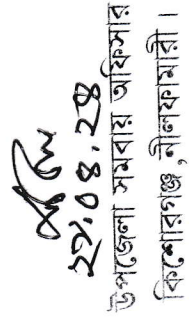 ২৭.০৪.২৪
উপজেলা সমবায় অফিসার
কিশোরগঞ্জ, নীলফামারী।